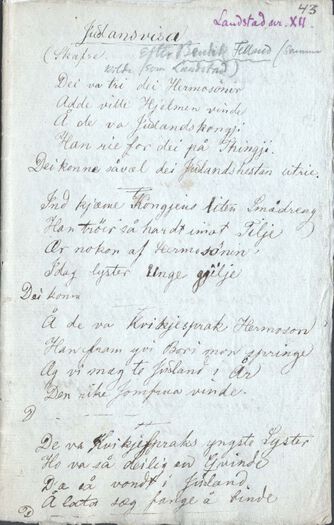 43
Landstad nr. XII.
Jutlansvisa
(Skafse. efter Bendik Felland (samme
kilde som Landstad)
Dei va tri dei Hermosönir
Adde ville Hjelmen vinde
Å de va Jutlandskongji
Han rie for dei på Thingji.
Dei konne såvæl dei Jutlandshestan utrie.
Ind kjæme Kongjens liten Smådreng
Han tröir så hardt imot Tilje
Ær nokon af Hermosönn
Idag lyster Unge gilje
Dei konn
Å de va Kvikjesprak Hermoson
Han fram yvi Bori mon springe
Ag vi mag te Jutland i År
Den rike Jomfrua vinde.
D
De va Kvikjespraks yngste Lyster
Ho va så deilig en Qvinde
Dæ så vondt i Jutland
Å lata sæg fange å binde
D